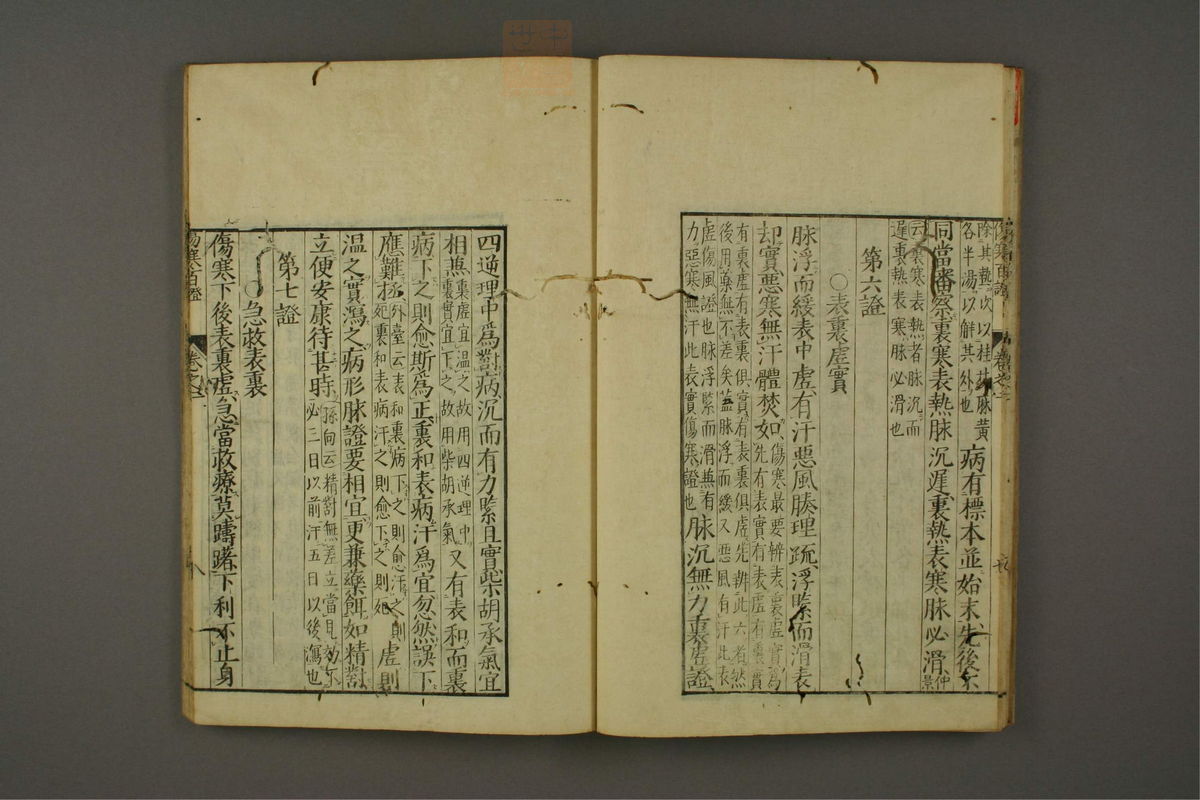 除其熱次以桂枝麻黄
各半湯以解其外也
病有標本並始末先後不
同當審祭裏寒表熱脉沉遲裏熱表寒脉必滑
仲景
云裏寒表熱者脉沉而
遲裏熱表寒脉必滑也
第六證
○表裏虛實
脉浮而緩表中虛有汗惡風腠理疏浮緊而滑表
却實惡寒無汗體焚如
傷寒最要辨表裏虛實為
先有表實有表虛有裏實
有裏虛有表裏俱實有表裏俱虛先辨此六者然
後用藥無不差矣蓋脉浮而緩又惡風有汗此表
虛傷風證也脉浮緊而滑兼有
力惡寒無汗此表實傷寒證也
脉沉無力裏虛證
四逆理中為對病沉而有力緊且實柴胡承氣宜
相兼
裏虛宜温之故用四逆理中
裏實宜下之故用柴胡承氣
又有表和而裏
病下之則愈斯為正裏和表病汗為宜忽然誤下
應難拯
外臺云表和裏病下之則愈汗之則
死裏和表病汗之則愈下之則死
虛則
温之實瀉之病形脉證要相宜更兼藥餌如精對
立便安康待甚時
孫向云精對無差立當見効不
必三日以前汗五日以後瀉也
第七證
○急救表裏
傷寒下後表裏虛急當救療莫躊躇下利不止身
傷寒百證
卷之二